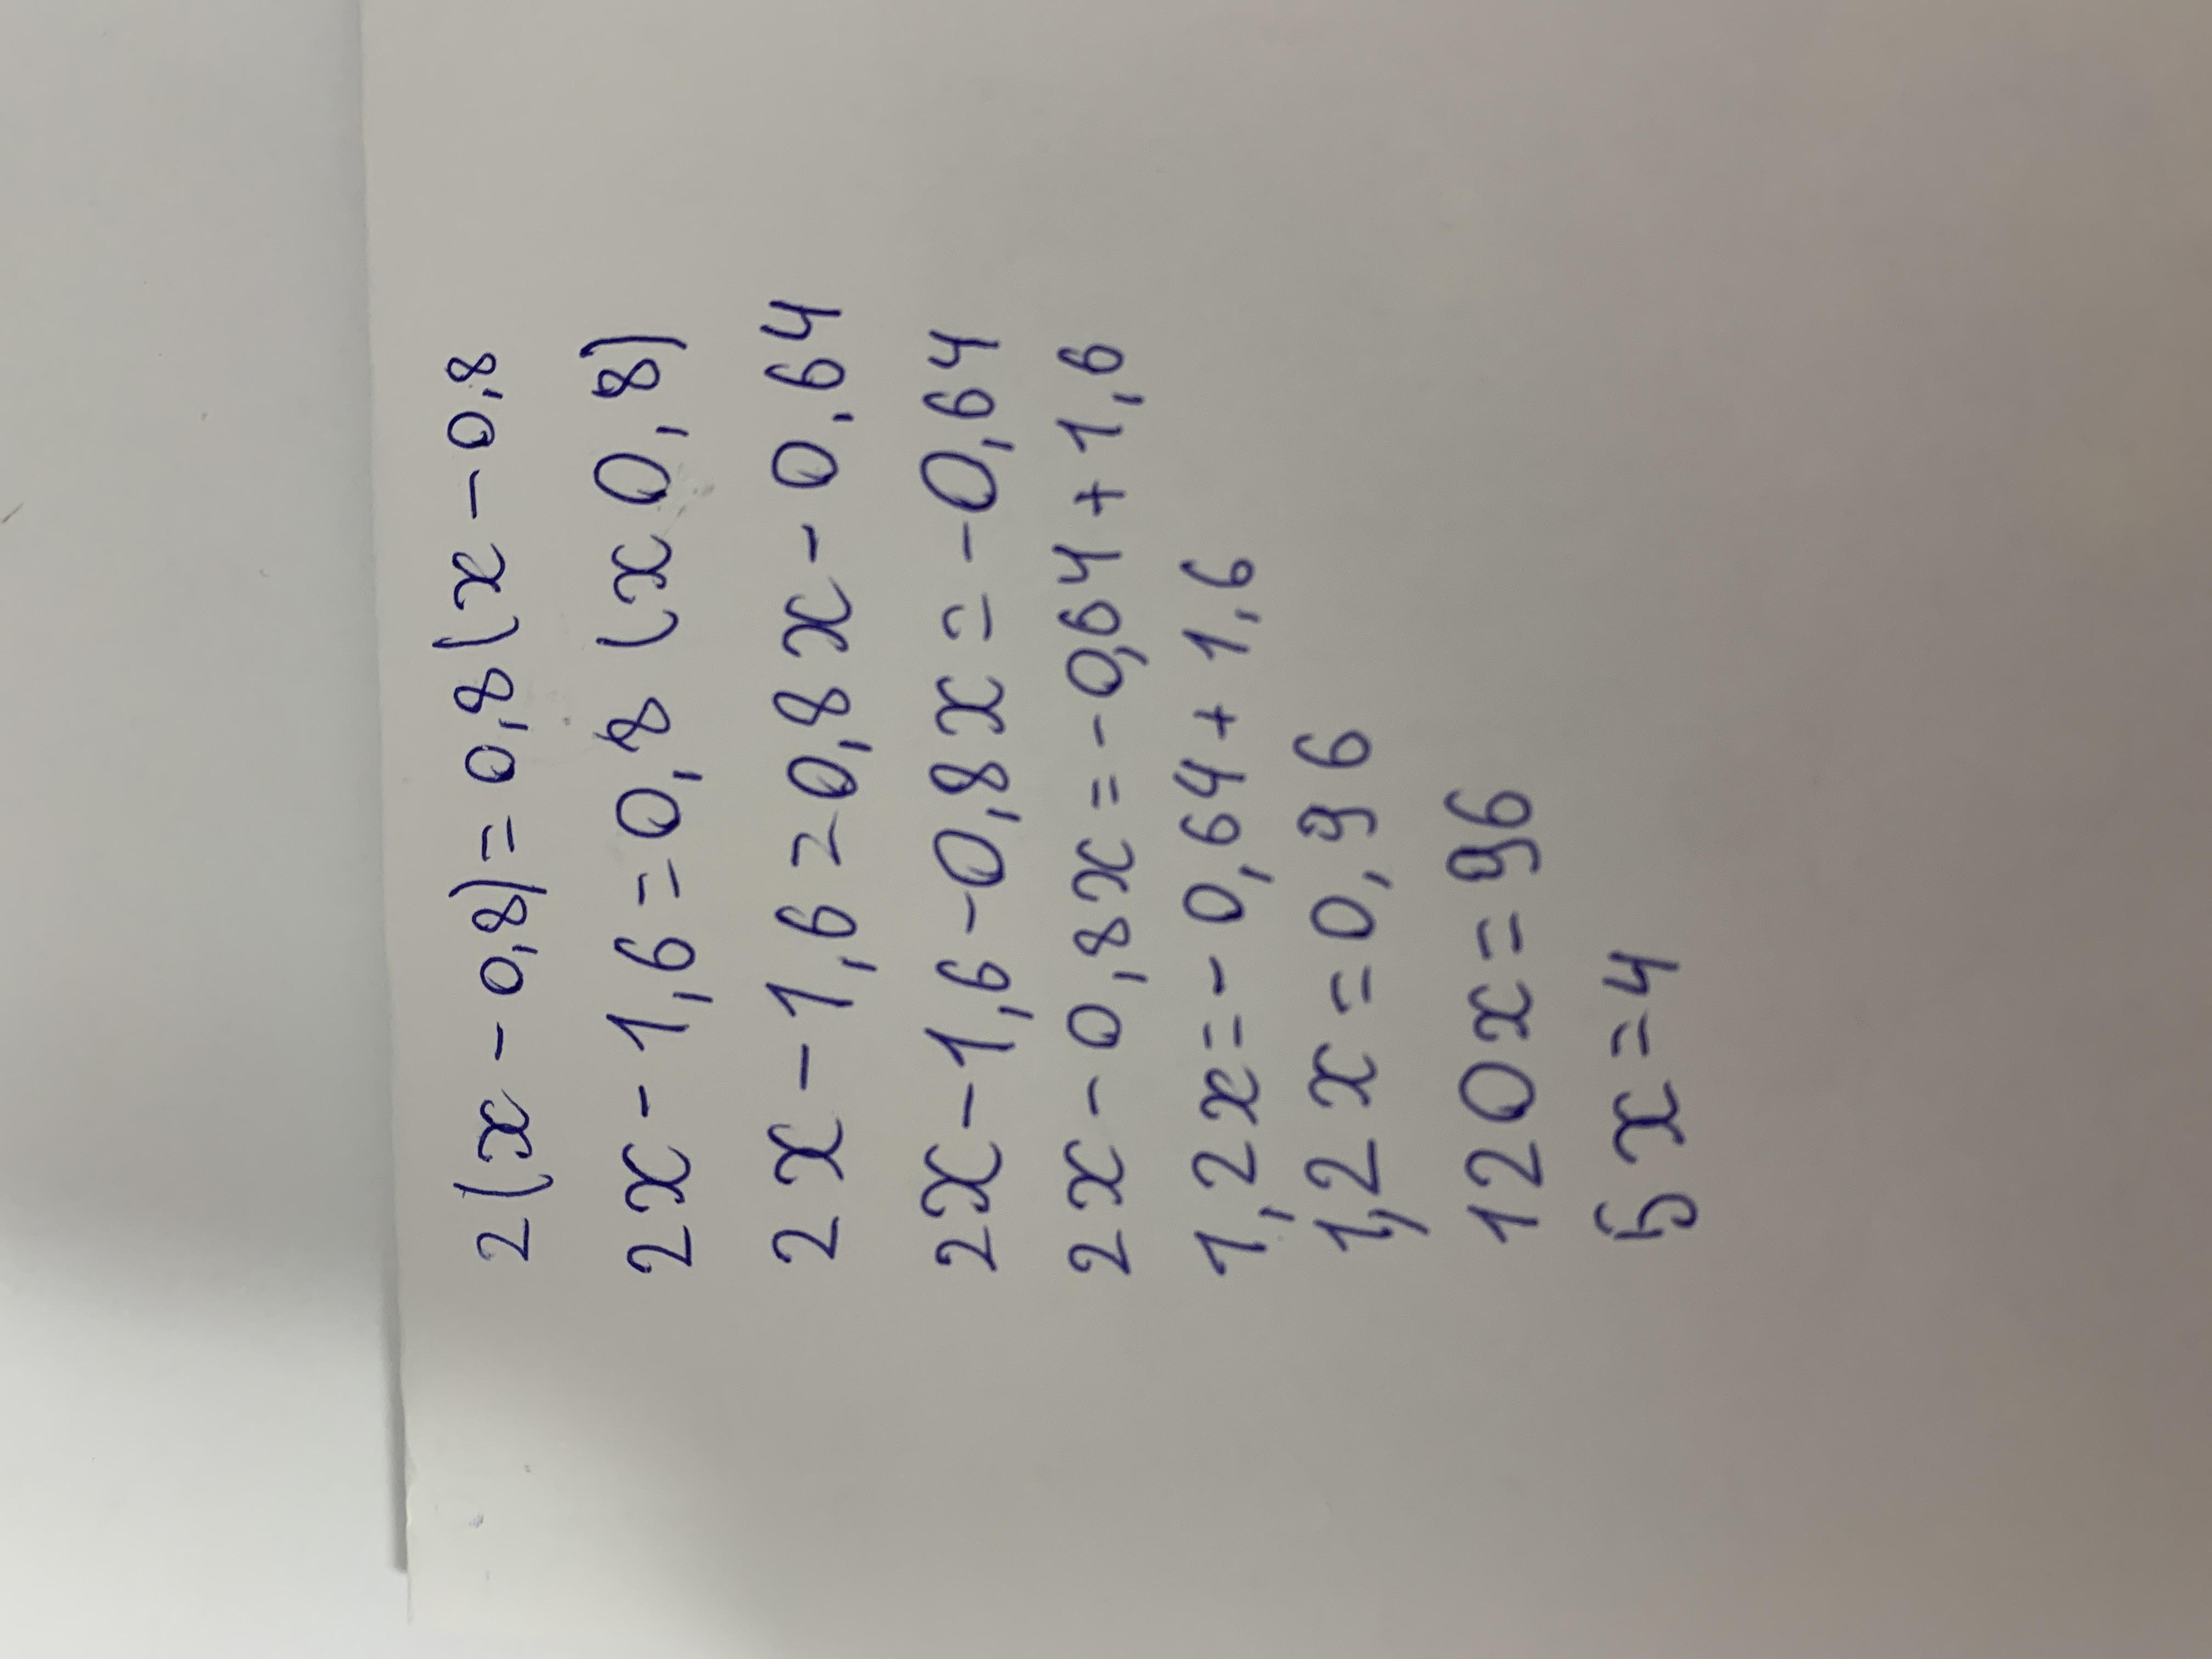 2(x - 0,8) = 0,8(x - 0,8
2x - 1,6 = 0,8(x 0,8)
2x - 1,6 = 0,8x - 0.64
2x - 1,6 - 0,8x = -0,64
2x - 0,8x = -0,64 + 1,6
1,2x = -0,64 + 1,6
1,2x = 0,96
120x = 96
5x = 4